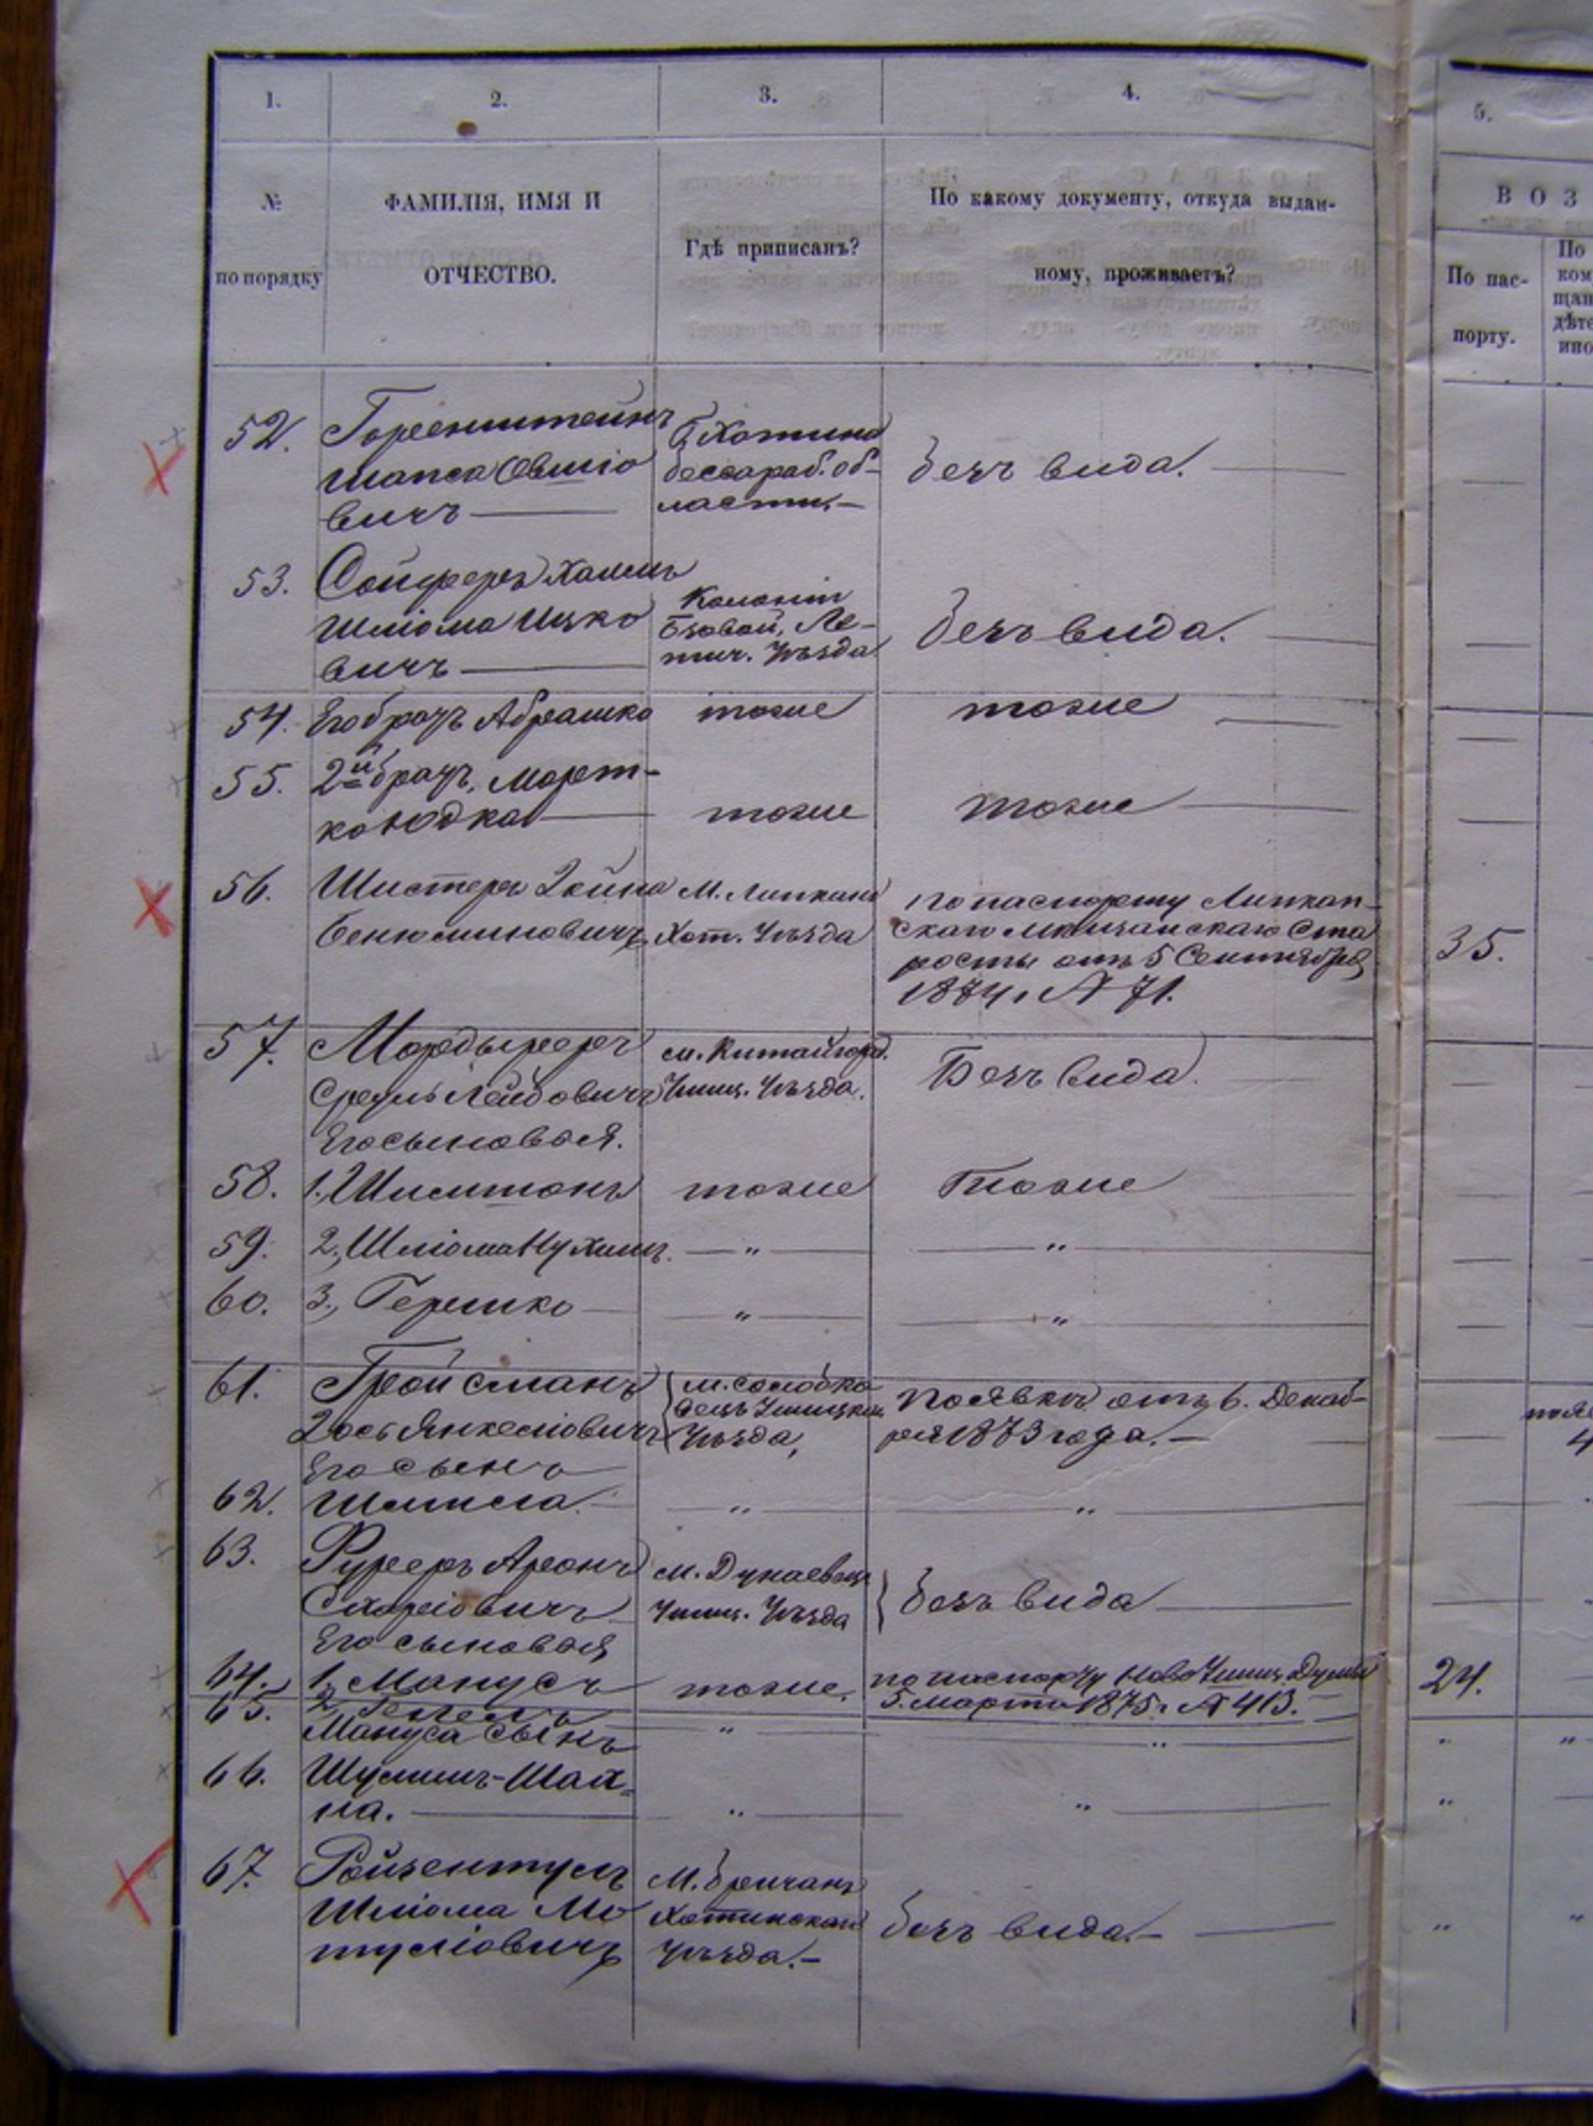 1.
2.
3.
4.
5.
№
по порядку
ФАМИЛІЯ, ИМЯ И
ОТЧЕСТВО.
Гдѣ приписанъ?
По какому документу, откуда выдан-
ному, проживаетъ?
ВОЗ
По пас-
порту.
По
ком
щан
дѣте
ино
52. Горенштейнъ
Шапса Овшіо
вичъ
Г. Хотина
бессараб. об-
ласти.
безъ вида.
53. Сойферъ Хаимъ
Шліома Ицко
вичъ
Колоніи
Лѣ-
тич. Уѣзда
безъ вида.
54. Его братъ Абрашко
тоже
тоже
55. 2й братъ, Морт-
ко Юдка
тоже
тоже
56. Шистеръ Зейна
Бенюминовичъ
М. Липканъ
Хот. Уѣзда
по паспорту Липкан-
скаго мѣщанскаго Ста
росты отъ 5 Сентября
1874 г. № 71.
35.
57. Мордыреръ
Срулъ Лейбовичъ
Его сыновья.
м. Китайгород.
Ушиц. Уѣзда.
Безъ вида.
58. 1, Шимшонъ
тоже
тоже
59. 2, Шліома Нухимъ
— " —
— " —
60. 3, Гершко
"
"
61. Гройсманъ
Зось Янкеліовичъ
Его сынъ
м. Солобко
вецъ Ушицкаго
Уѣзда,
по явкѣ отъ 6. Декаб-
ря 1873 года.
по яв
4
62. Шмила.
"
"
63. Фуреръ Аронъ
Сахаріовичъ
Его сыновья
м. Дунаевецъ
Ушиц. Уѣзда
безъ вида
64. 1, Манусъ
тоже.
по паспорту НовоУшиц. Думы
5. марта 1875 г. № 413.
24.
65. 2,
Мануса сынъ
"
"
"
"
66. Шулимъ-Шай-
на.
"
"
"
67. Ройзентулъ
Шліома Мо
туліовичъ
М. Бричанъ
Хотинскаго
Уѣзда.
безъ вида.
"
"